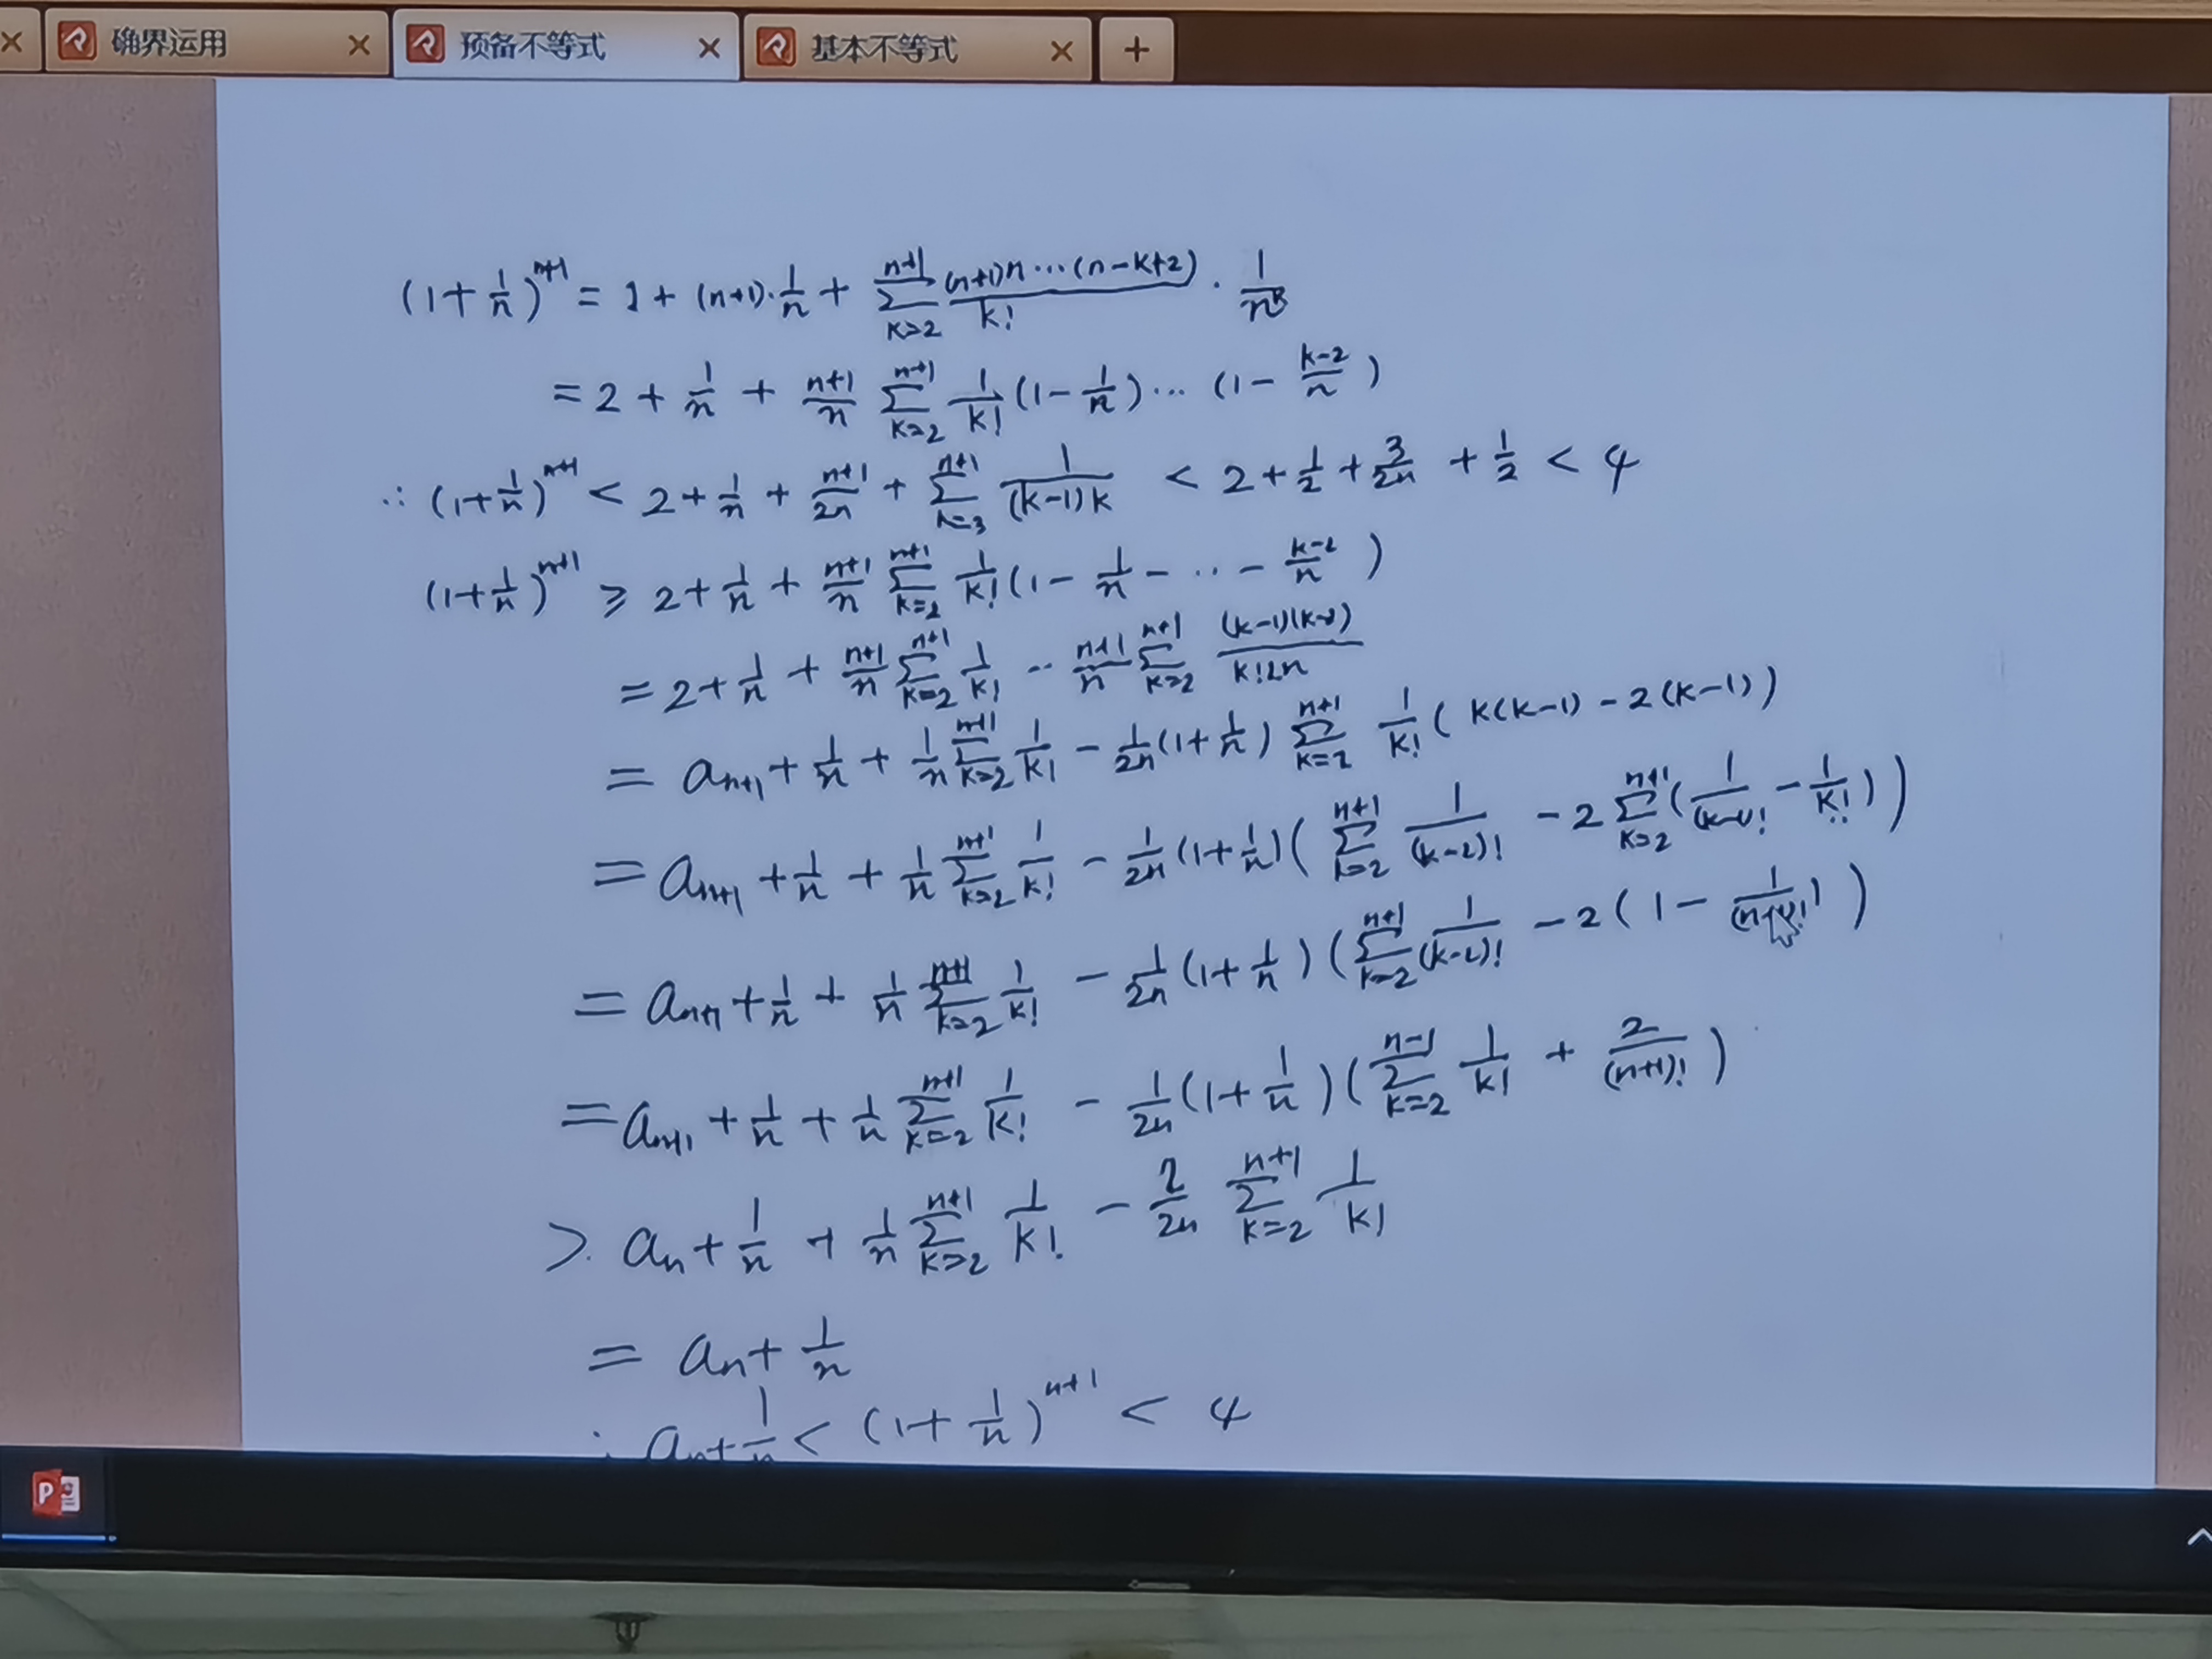 确界运用 预备不等式 基本不等式 +
(1+1/n)^{n+1} = 1 + (n+1)·1/n + ∑_{k=2}^{n+1} (n+1)n···(n-k+2)/k! · 1/n^k
= 2 + 1/n + (n+1)/n ∑_{k=2}^{n+1} 1/k! (1-1/n)··· (1-(k-2)/n)
∴ (1+1/n)^{n+1} < 2 + 1/n + (n+1)/2n + ∑_{k=3}^{n+1} 1/((k-1)k) < 2 + 1/2 + 3/2n + 1/2 < 4
(1+1/n)^{n+1} ≥ 2 + 1/n + (n+1)/n ∑_{k=2}^{n+1} 1/k! (1 - 1/n - ··· - (k-2)/n)
= 2 + 1/n + (n+1)/n ∑_{k=2}^{n+1} 1/k! - (n+1)/n ∑_{k=2}^{n+1} (k-1)(k-2)/(k!2n)
= a_{n+1} + 1/n + 1/n ∑_{k=2}^{n+1} 1/k! - 1/2n (1+1/n) ∑_{k=2}^{n+1} 1/k! (k(k-1) - 2(k-1))
= a_{n+1} + 1/n + 1/n ∑_{k=2}^{n+1} 1/k! - 1/2n (1+1/n)(∑_{k=2}^{n+1} 1/(k-2)! - 2∑_{k=2}^{n+1}(1/(k-1)! - 1/k!))
= a_{n+1} + 1/n + 1/n ∑_{k=2}^{n+1} 1/k! - 1/2n (1+1/n)(∑_{k=2}^{n+1} 1/(k-2)! - 2(1 - 1/(n+1)!))
= a_{n+1} + 1/n + 1/n ∑_{k=2}^{n+1} 1/k! - 1/2n (1+1/n)(∑_{k=2}^{n-1} 1/k! + 2/(n+1)!)
> a_n + 1/n + 1/n ∑_{k=2}^{n+1} 1/k! - 2/2n ∑_{k=2}^{n+1} 1/k!
= a_n + 1/n
∴ a_n + 1/n < (1+1/n)^{n+1} < 4
P